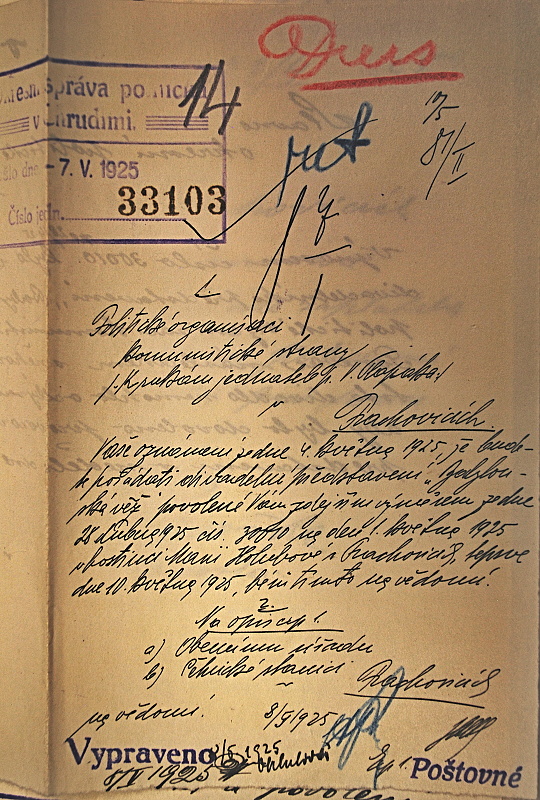 Dnes
Okresní správa politická
v Chrudimi.
14
Došlo dne -7. V. 1925
Číslo jedn. 33103
1.
Politické organisaci
komunistické strany
/:K rukám jednatele p. V. Klapálka:/
v
Prachovicích.
Vaše oznámení ze dne 4. května 1925, že bude-
te pořádati divadelní představení „Babylon-
ská věž" povolené Vám zdejším výměrem ze dne
28. dubna 1925 čís. 30010 na den 1. května 1925
v hostinci Marie Holubové v Prachovicích, teprve
dne 10. května 1925, béře se tímto na vědomí.
2.
Na opis:
a) Obecnímu úřadu
b) Četnické stanici
v
Prachovicích
na vědomí.
8/5 1925
Vypraveno
1925
Poštovné